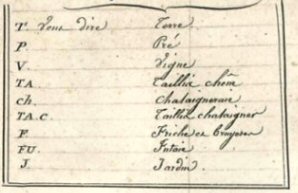 T. Veut dire Terre
P. Pré
V. Vigne
TA. Taillis chêne
ch. Chataigneraie
TA.C. Taillis chataigner
F. Friche et bruyeres
FU. Futaie
J. Jardin